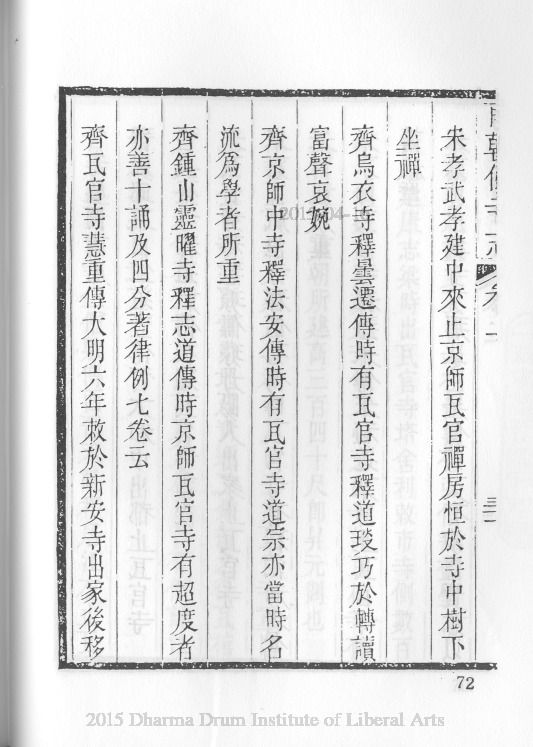 宋孝武孝建中來止京師瓦官禪房恒於寺中樹下
坐禪
齊烏衣寺釋曇遷傳時有瓦官寺釋道琰巧於轉讀
富聲哀婉
齊京師中寺釋法安傳時有瓦官寺道宗亦當時名
流為學者所重
齊鍾山靈曜寺釋志道傳時京師瓦官寺有超度者
亦善十誦及四分著律例七卷云
齊瓦官寺慧重傳大明六年敕於新安寺出家後移
72
2015 Dharma Drum Institute of Liberal Arts